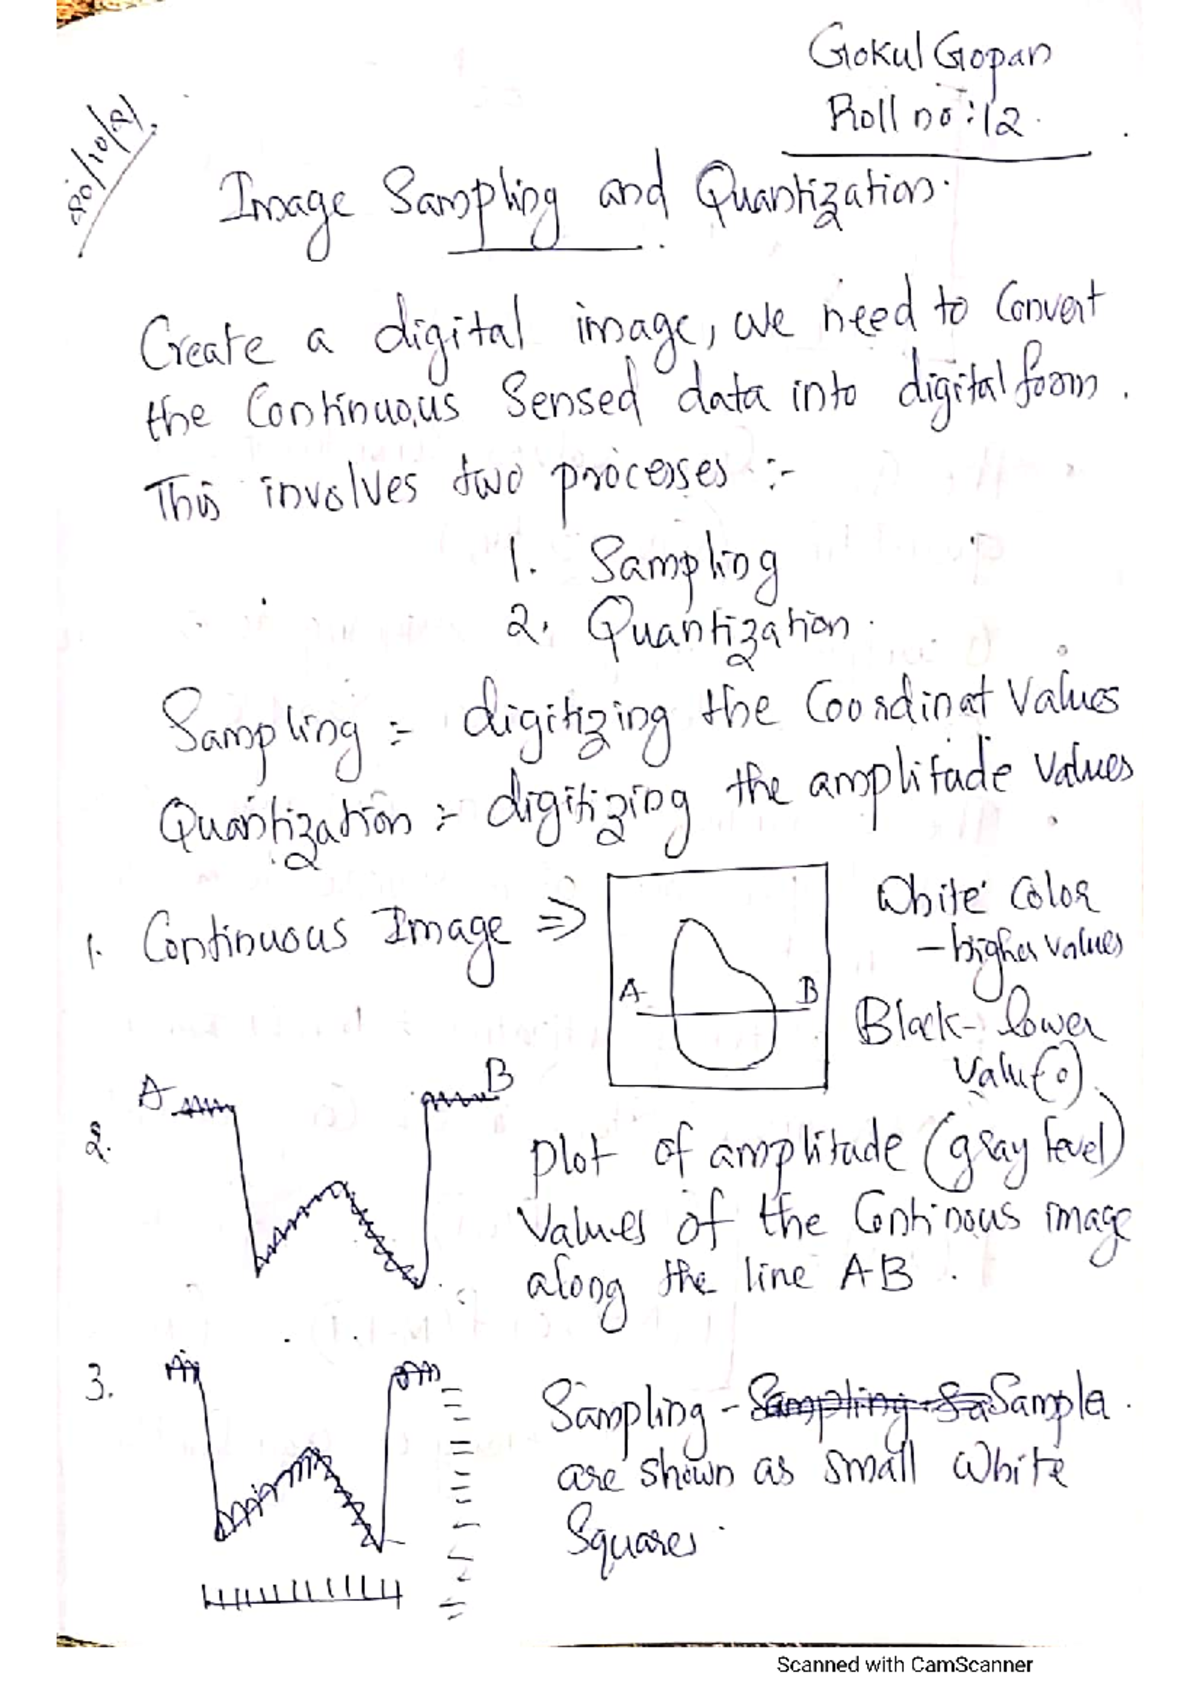 Gokul Gopan
Roll no :12.
20/10/21.
Image Sampling and Quantization.
Create a digital image, we need to Convert
the Continuous Sensed data into digital form.
This involves two processes :-
1. Sampling
2. Quantization.
Sampling :- digitizing the Coordinat Values
Quantization :- digitizing the amplitude values
1. Continuous Image ⇒
A B
White Color
- higher values
Black - lower
Valu(0).
2.
A B
Plot of amplitude (gray level)
Values of the Continous image
along the line AB.
3.
Sampling - Sample.
are shown as small White
Squares.
Scanned with CamScanner